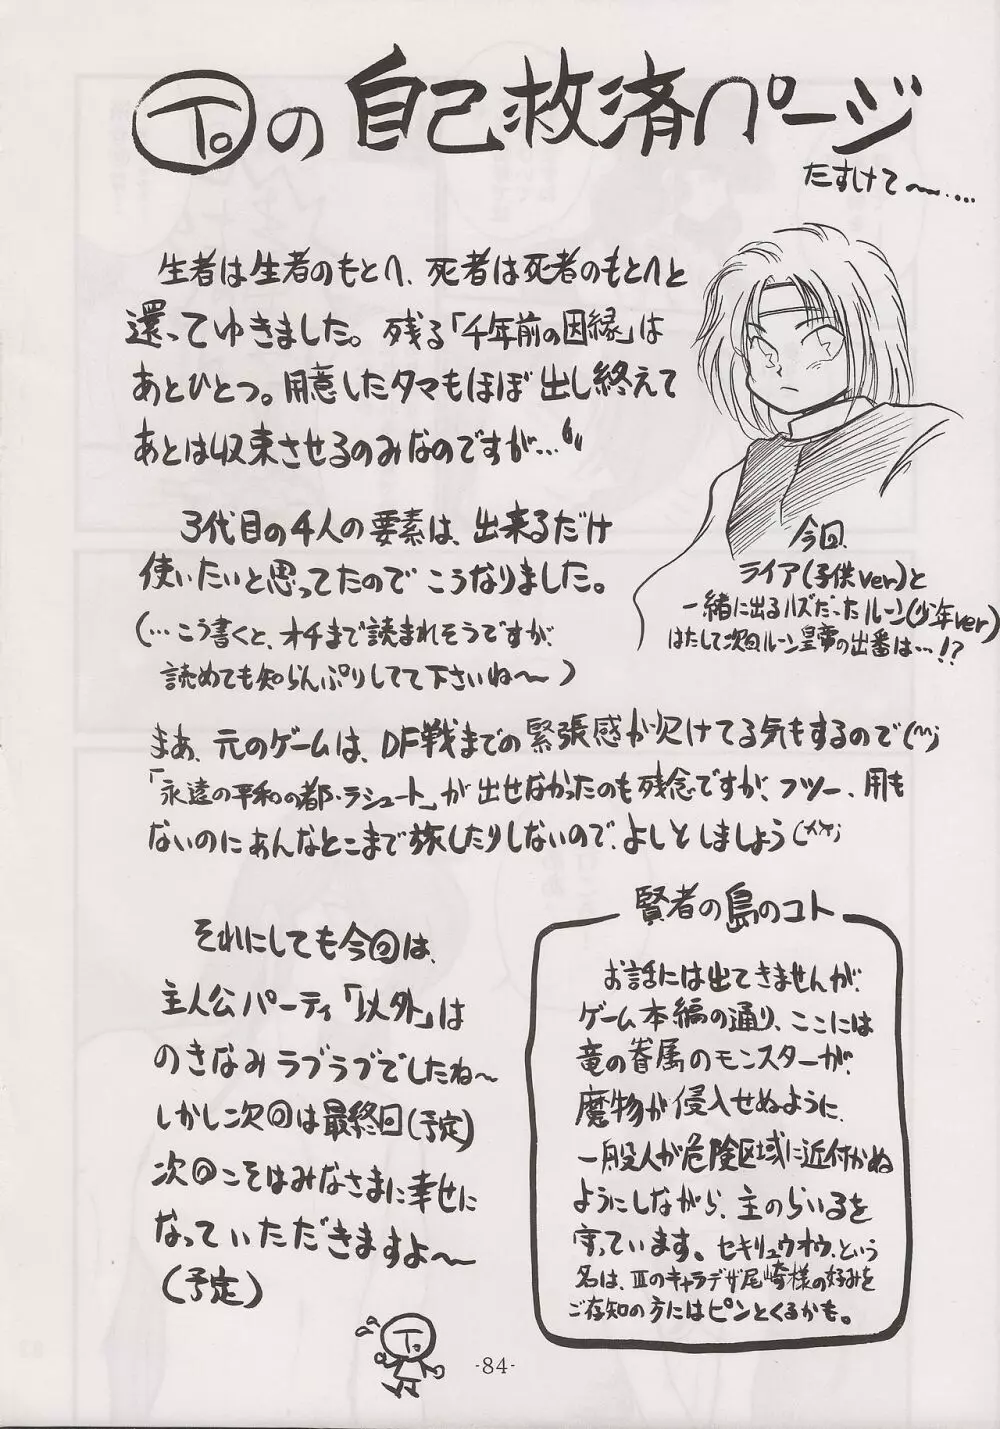 To の 自己救済ページ
たすけて〜‥‥
生者は生者のもとへ、死者は死者のもとへと
還ってゆきました。残る「千年前の因縁」は
あとひとつ。用意したタマもほぼ出し終えて
あとは収束させるのみなのですが…
3代目の4人の要素は、出来るだけ
使いたいと思ってたのでこうなりました。
(…こう書くと、オチまで読まれそうですが
読めても知らんぷりしてて下さいね〜)
まあ、元のゲームは、DF戦までの緊張感が欠けてる気もするので(^^;)
「永遠の平和の都・ラシュート」が出せなかったのも残念ですが、フツー、用も
ないのにあんなとこまで旅したりしないので、よしとしましょう(^^;)
今回、
ライア(子供ver)と
一緒に出るハズだったルーン(少年ver)
はたして次回ルーン皇帝の出番は…!?
それにしても今回は、
主人公パーティ「以外」は
のきなみラブラブでしたね〜
しかし次回は最終回(予定)
次回こそはみなさまに幸せに
なっていただきますよ〜
(予定)
To
賢者の島のコト
お話には出てきませんが、
ゲーム本編の通り、ここには
竜の眷属のモンスターが、
魔物が侵入せぬように、
一般人が危険区域に近付かぬ
ようにしながら、主のらいるを
守っています。セキリュウオウ、という
名は、IIIのキャラデザ尾崎様の好みを
ご存知の方にはピンとくるかも。
-84-